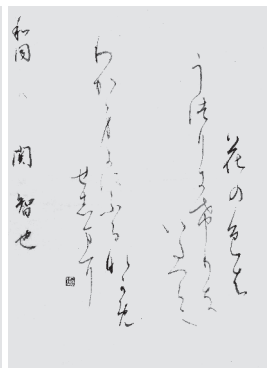 花の色は
うつりにけりな
いたつらに
わか身よにふるなかめ
せしまに
和同 関 智也